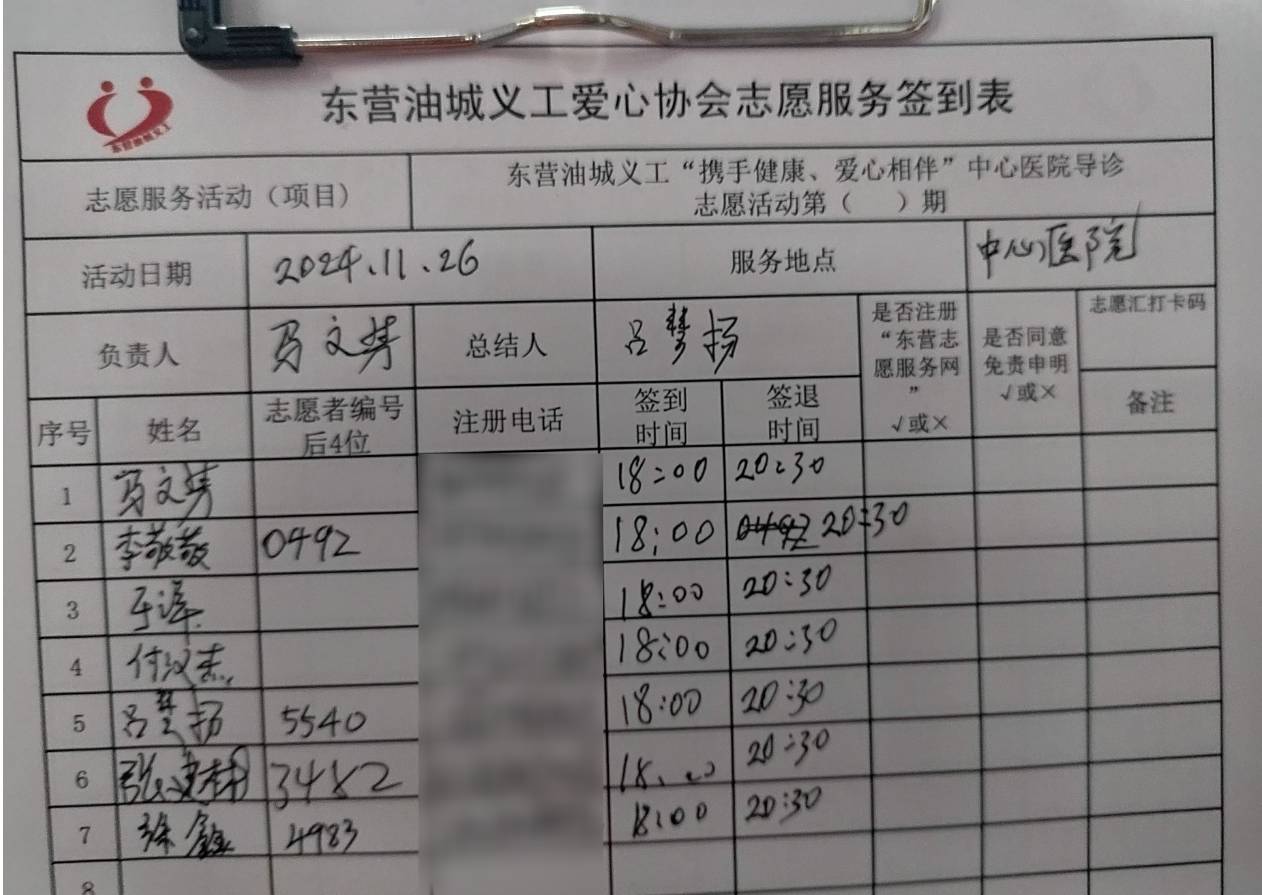 东营油城义工爱心协会志愿服务签到表
东营油城义工
志愿服务活动（项目） 东营油城义工“携手健康、爱心相伴”中心医院导诊
志愿活动第（ ）期
活动日期 2024.11.26 服务地点 中心医院
负责人 马文涛 总结人 吕梦扬 是否注册“东营志愿服务网” √或× 是否同意免责申明 √或× 志愿汇打卡码
序号 姓名 志愿者编号后4位 注册电话 签到时间 签退时间 备注
1 马文涛 18:00 20:30
2 李敬敬 0492 18:00 20:30
3 于泽 18:00 20:30
4 付汉杰 18:00 20:30
5 吕梦扬 5540 18:00 20:30
6 张建 3482 18:00 20:30
7 徐鑫 4983 18:00 20:30
8